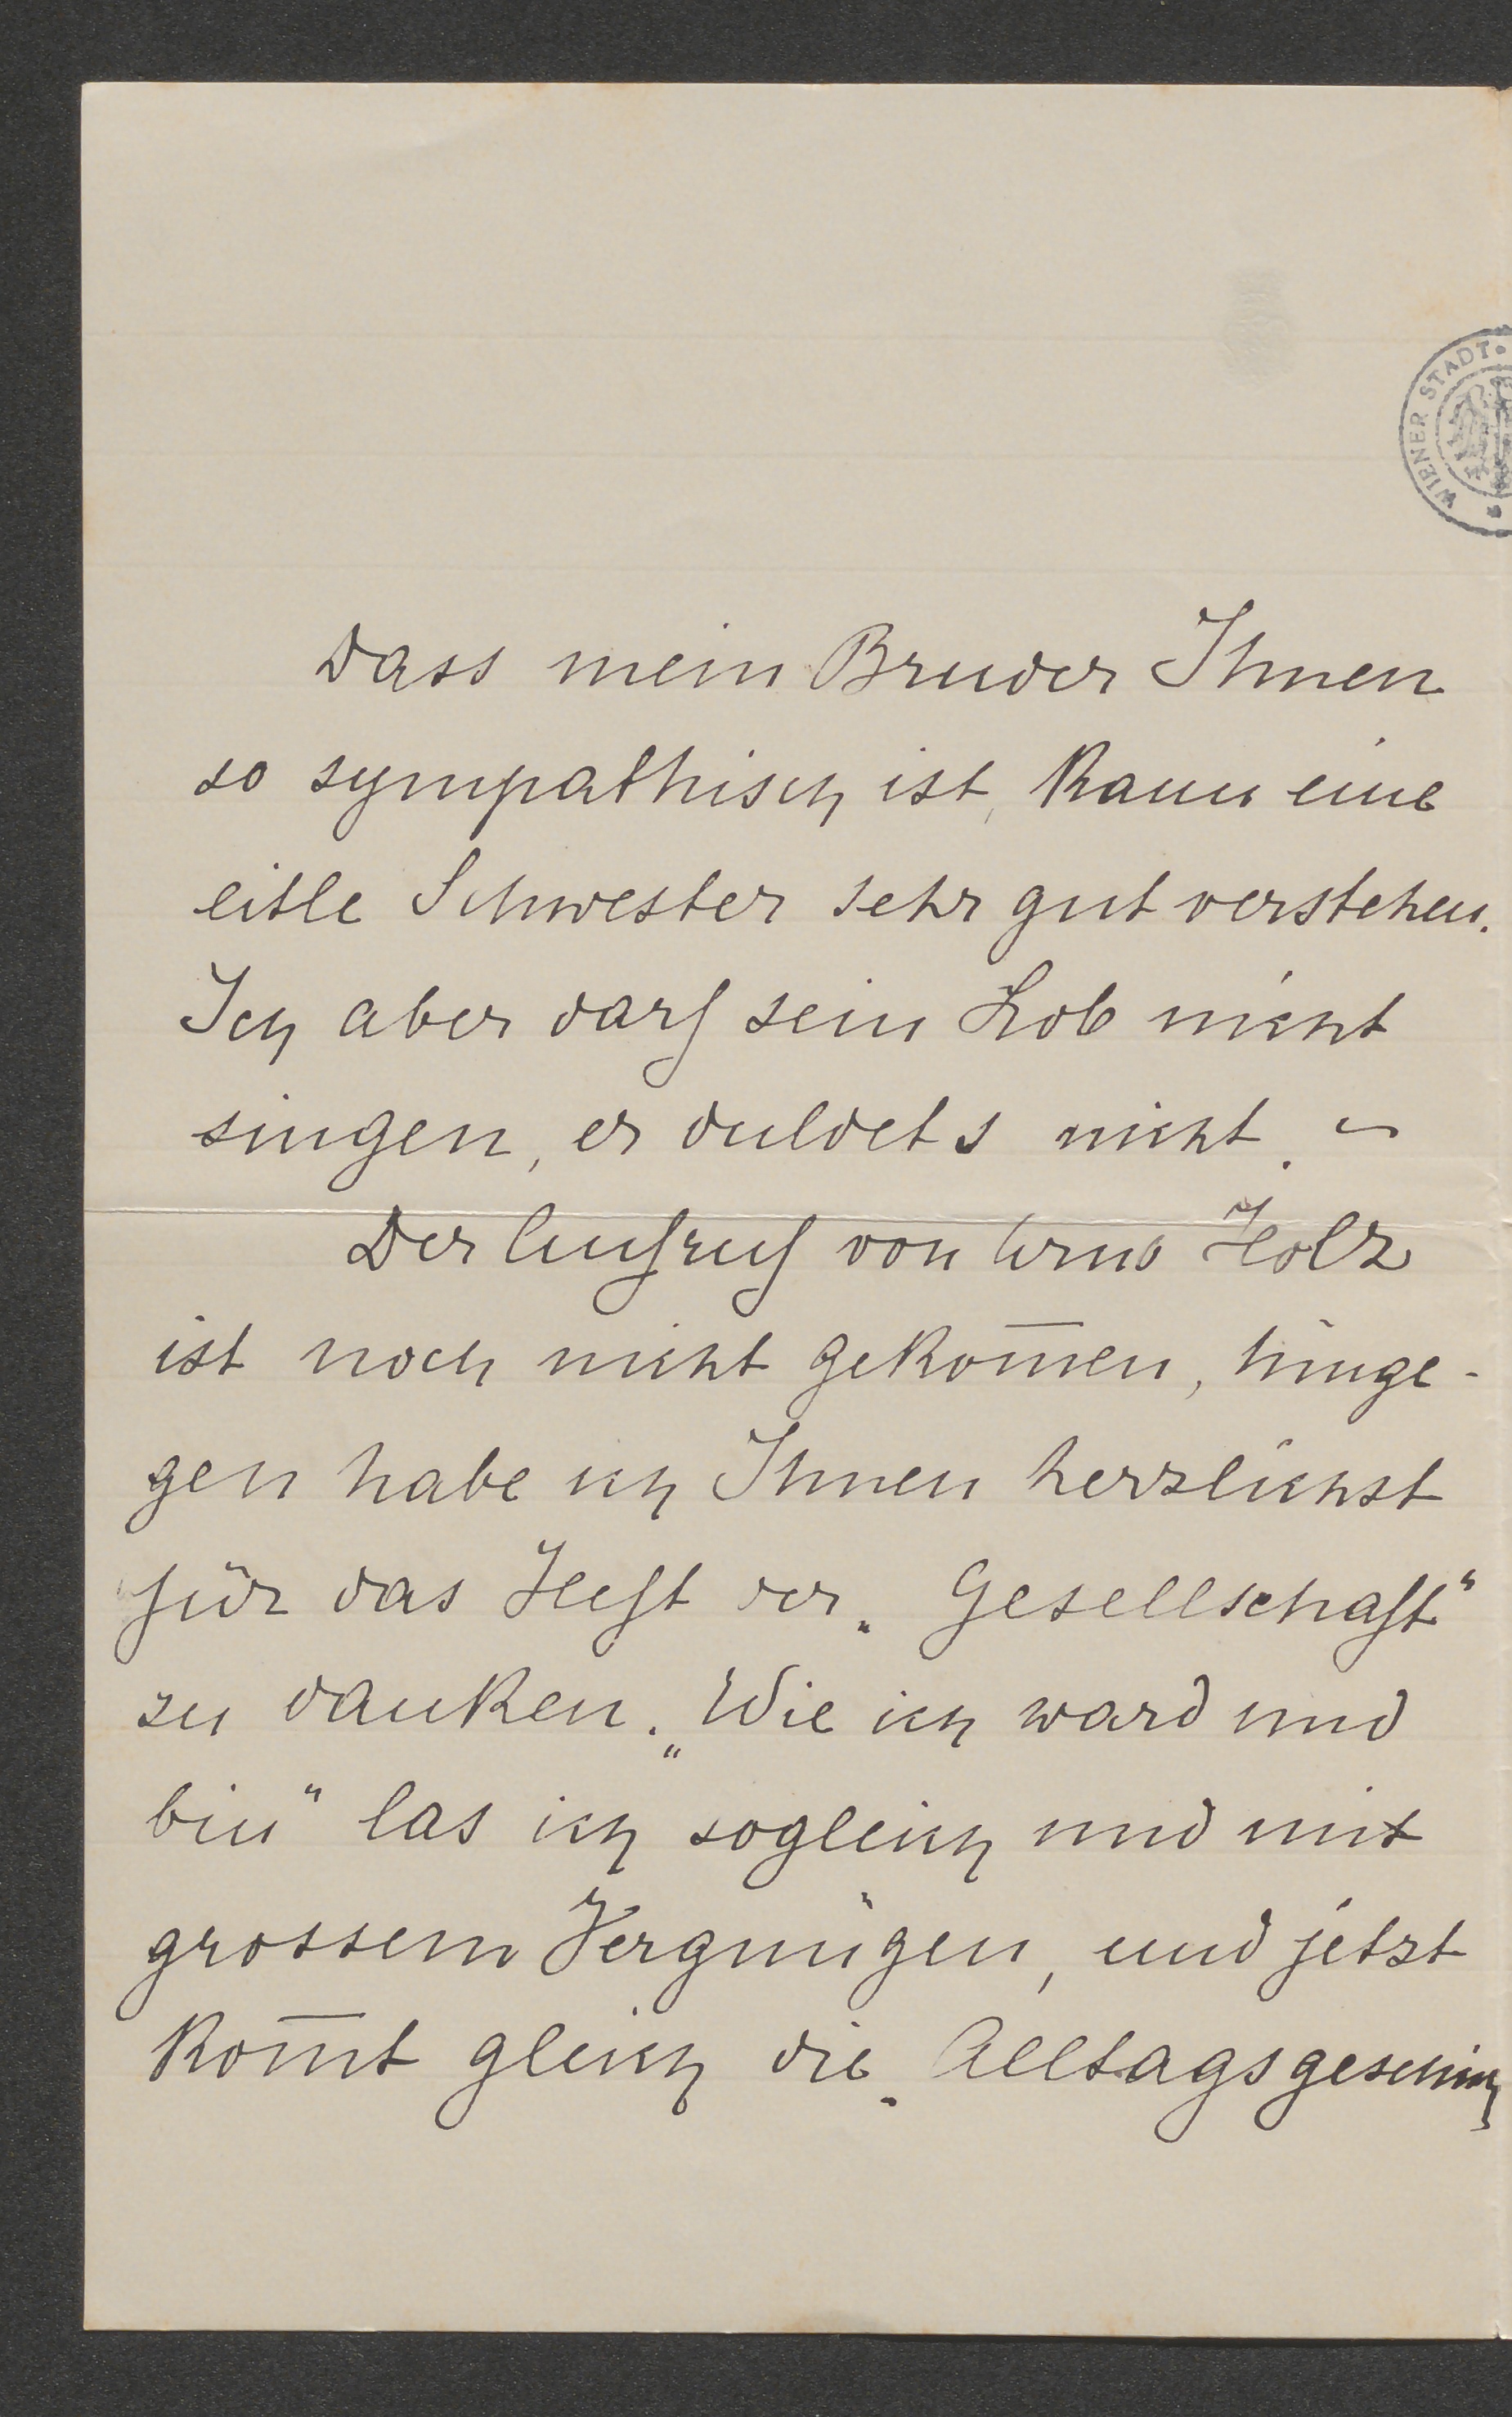 WIENER STADT.
Dass mein Bruder Ihnen
so sympathisch ist, kann eine
eitle Schwester sehr gut verstehen.
Ich aber darf sein Lob nicht
singen, er duldets nicht. –
Der Aufruf von Arno Holz
ist noch nicht gekom̄en, hinge-
gen habe ich Ihnen herzlichst
für das Heft der „Gesellschaft“
zu danken. „Wie ich ward und
bin“ las ich sogleich und mit
grossem Vergnügen, und jetzt
kom̄t gleich die „Alltagsgeschich